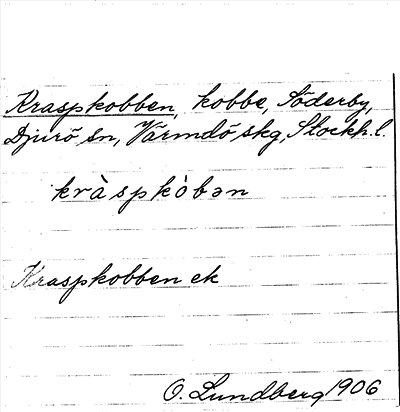 Kraspkobben, kobbe, Söderby,
Djurö sn, Värmdö skg, Stockh. l.
kràspkòbən
Kraspkobben ek
O. Lundberg 1906